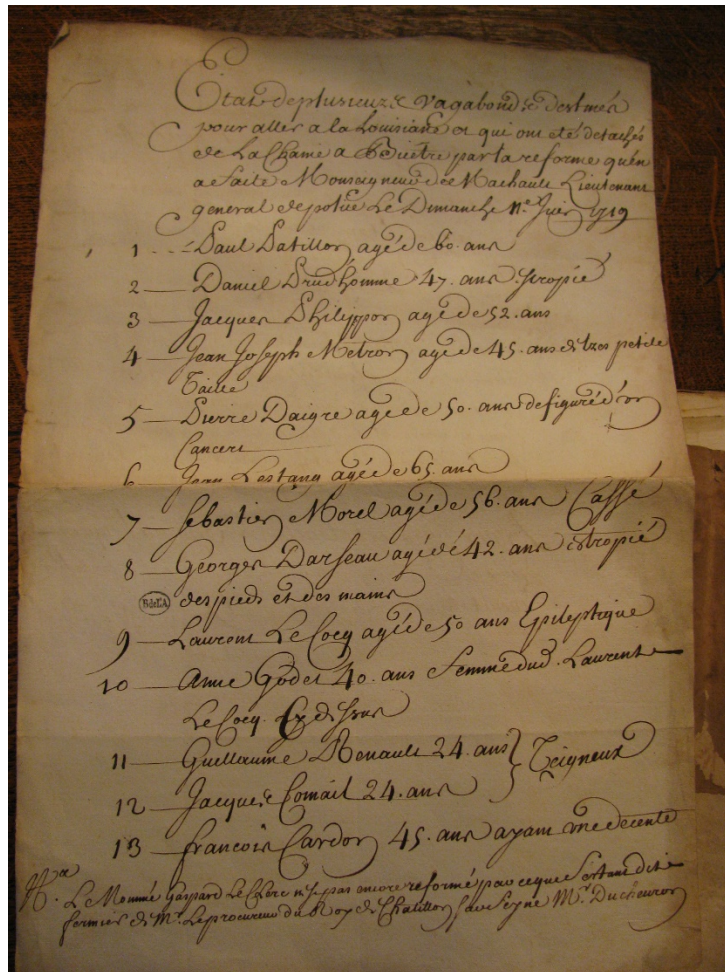 Etat de plusieurs vagabonds destinés
pour aller a la Louisiane et qui ont été detachés
de La Chaine a par la reforme quen
a faite Monseigneur de Machault Lieutenant
general de police Le Dimanche Juin 1719
1 Paul Patillon agé de 60. ans
2 Daniel Prud'homme 47. ans estropié
3 Jacques Philippon agé de 52. ans
4 Jean Joseph Metron agé de 45. ans de tres petite
Taille
5 Pierre Daigre agé de 50. ans defiguré d'un
Cancert
6 Jean Lestang agé de 65. ans
7 Sebastien Morel agé de 56. ans Cassé
8 Georges Darseau agé de 42. ans estropié
des pieds et des mains
BdeLA
9 Laurent Le Cocq agé de 50 ans Epileptique
10 Anne Godet 40. ans femme dud. Laurent
Le Cocq Cy dessus
11 Guillaume Renault 24. ans
Teigneux
12 Jacques Comail 24. ans
13 francois Cardon 45. ans ayant une decente
Na. Le Nommé Gaspard Le Clerc n'est pas encore reformé parce que s'étant dit
fermier de Mr. Le procureur du Roy de Chatillon sur Mr.